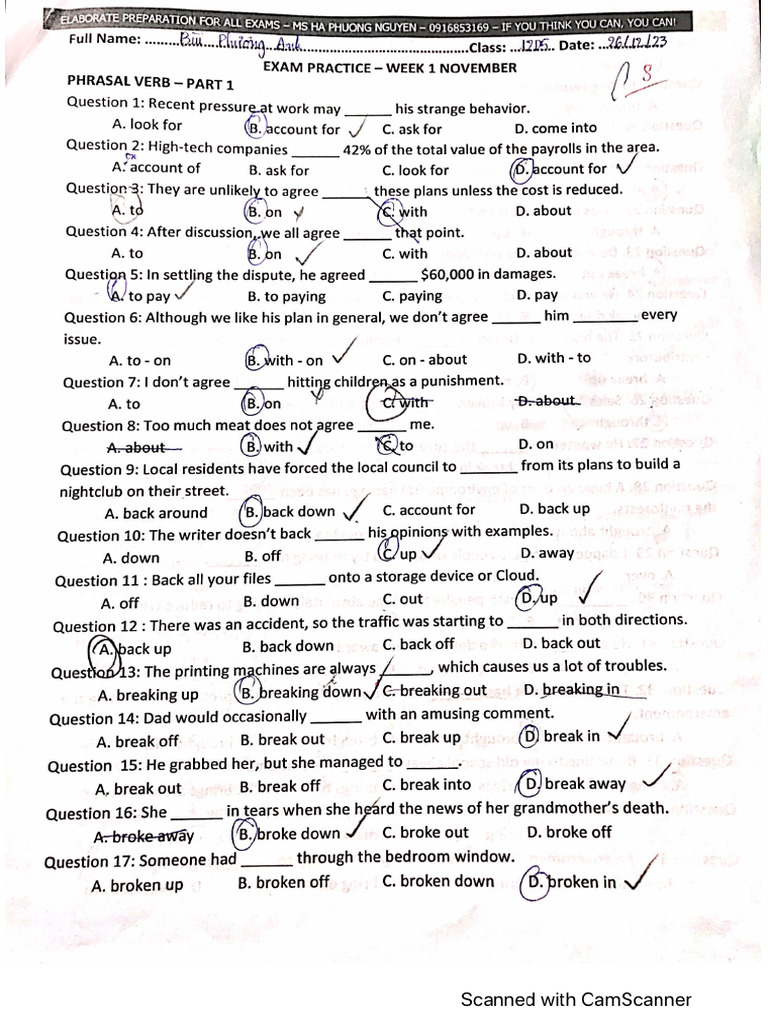 ELABORATE PREPARATION FOR ALL EXAMS – MS HA PHUONG NGUYEN – 0916853169 – IF YOU THINK YOU CAN, YOU CAN!
Full Name: .........Bùi Phương Anh..............................Class: ...12D5.. Date: ..26/12/23
EXAM PRACTICE – WEEK 1 NOVEMBER
8
PHRASAL VERB – PART 1
Question 1: Recent pressure at work may ______ his strange behavior.
A. look for B. account for C. ask for D. come into
Question 2: High-tech companies ______ 42% of the total value of the payrolls in the area.
A. account of B. ask for C. look for D. account for
Question 3: They are unlikely to agree ______ these plans unless the cost is reduced.
A. to B. on C. with D. about
Question 4: After discussion, we all agree ______ that point.
A. to B. on C. with D. about
Question 5: In settling the dispute, he agreed ______ $60,000 in damages.
A. to pay B. to paying C. paying D. pay
Question 6: Although we like his plan in general, we don't agree ______ him ________ every
issue.
A. to - on B. with - on C. on - about D. with - to
Question 7: I don't agree ______ hitting children as a punishment.
A. to B. on C. with D. about
Question 8: Too much meat does not agree ______ me.
A. about B. with C. to D. on
Question 9: Local residents have forced the local council to _______ from its plans to build a
nightclub on their street.
A. back around B. back down C. account for D. back up
Question 10: The writer doesn't back ______ his opinions with examples.
A. down B. off C. up D. away
Question 11 : Back all your files ______ onto a storage device or Cloud.
A. off B. down C. out D. up
Question 12 : There was an accident, so the traffic was starting to ______ in both directions.
A. back up B. back down C. back off D. back out
Question 13: The printing machines are always ______, which causes us a lot of troubles.
A. breaking up B. breaking down C. breaking out D. breaking in
Question 14: Dad would occasionally ______ with an amusing comment.
A. break off B. break out C. break up D. break in
Question 15: He grabbed her, but she managed to ______.
A. break out B. break off C. break into D. break away
Question 16: She ______ in tears when she heard the news of her grandmother's death.
A. broke away B. broke down C. broke out D. broke off
Question 17: Someone had ______ through the bedroom window.
A. broken up B. broken off C. broken down D. broken in
Scanned with CamScanner